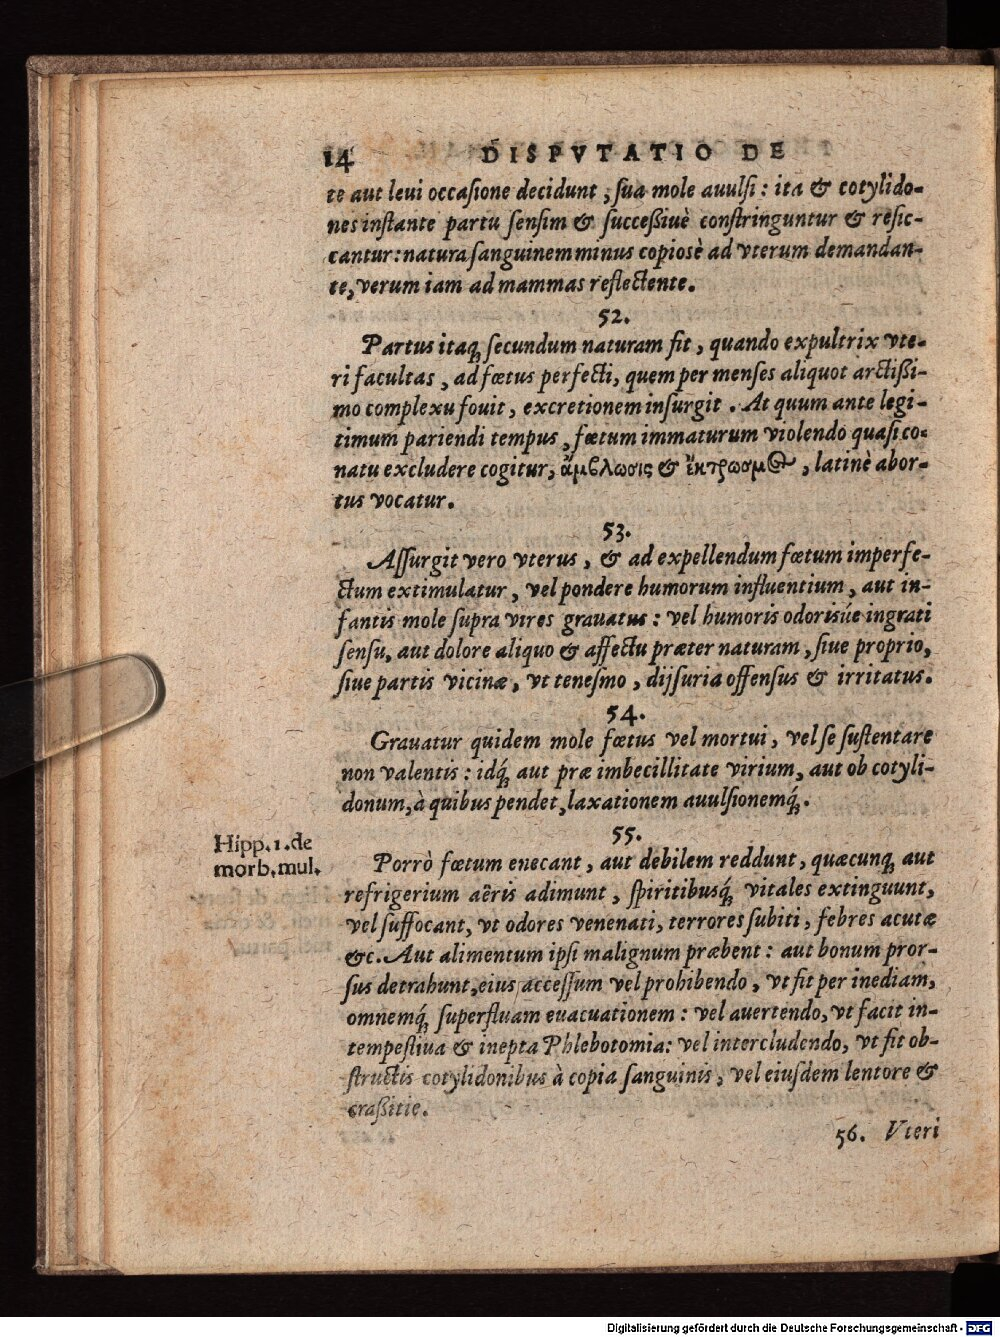 14 DISPVTATIO DE
te aut leui occaſione decidunt, ſua mole auulſi: ita & cotylido-
nes inſtante partu ſenſim & ſucceßiuè conſtringuntur & reſic-
cantur: natura ſanguinem minus copiosè ad vterum demandan-
te, verum iam ad mammas reflectente.
52.
Partus itaq́; ſecundum naturam fit, quando expultrix vte-
ri facultas, ad fœtus perfecti, quem per menſes aliquot arctißi-
mo complexu fouit, excretionem inſurgit. At quum ante legi-
timum pariendi tempus, fœtum immaturum violendo quaſi co-
natu excludere cogitur, ἄμβλωσις & ἔκτρωσμος, latinè abor-
tus vocatur.
53.
Aſſurgit vero vterus, & ad expellendum fœtum imperfe-
ctum extimulatur, vel pondere humorum influentium, aut in-
fantis mole ſupra vires grauatus: vel humoris odorisúe ingrati
ſenſu, aut dolore aliquo & affectu præter naturam, ſiue proprio,
ſiue partis vicinæ, vt teneſmo, dijſuria offenſus & irritatus.
54.
Grauatur quidem mole fœtus vel mortui, vel ſe ſuſtentare
non valentis: idq́; aut præ imbecillitate virium, aut ob cotyli-
donum, à quibus pendet, laxationem auulſionemq́;.
55.
Hipp. 1. de
morb. mul.
Porrò fœtum enecant, aut debilem reddunt, quæcunq; aut
refrigerium aëris adimunt, ſpiritibusq́; vitales extinguunt,
vel ſuffocant, vt odores venenati, terrores ſubiti, febres acutæ
&c. Aut alimentum ipſi malignum præbent: aut bonum pror-
ſus detrahunt, eius acceſſum vel prohibendo, vt fit per inediam,
omnemq́; ſuperfluam euacuationem: vel auertendo, vt facit in-
tempeſtiua & inepta Phlebotomia: vel intercludendo, vt fit ob-
ſtructis cotylidonibus à copia ſanguinis, vel eiuſdem lentore &
craßitie.
56. Vteri
Digitalisierung gefördert durch die Deutsche Forschungsgemeinschaft - DFG